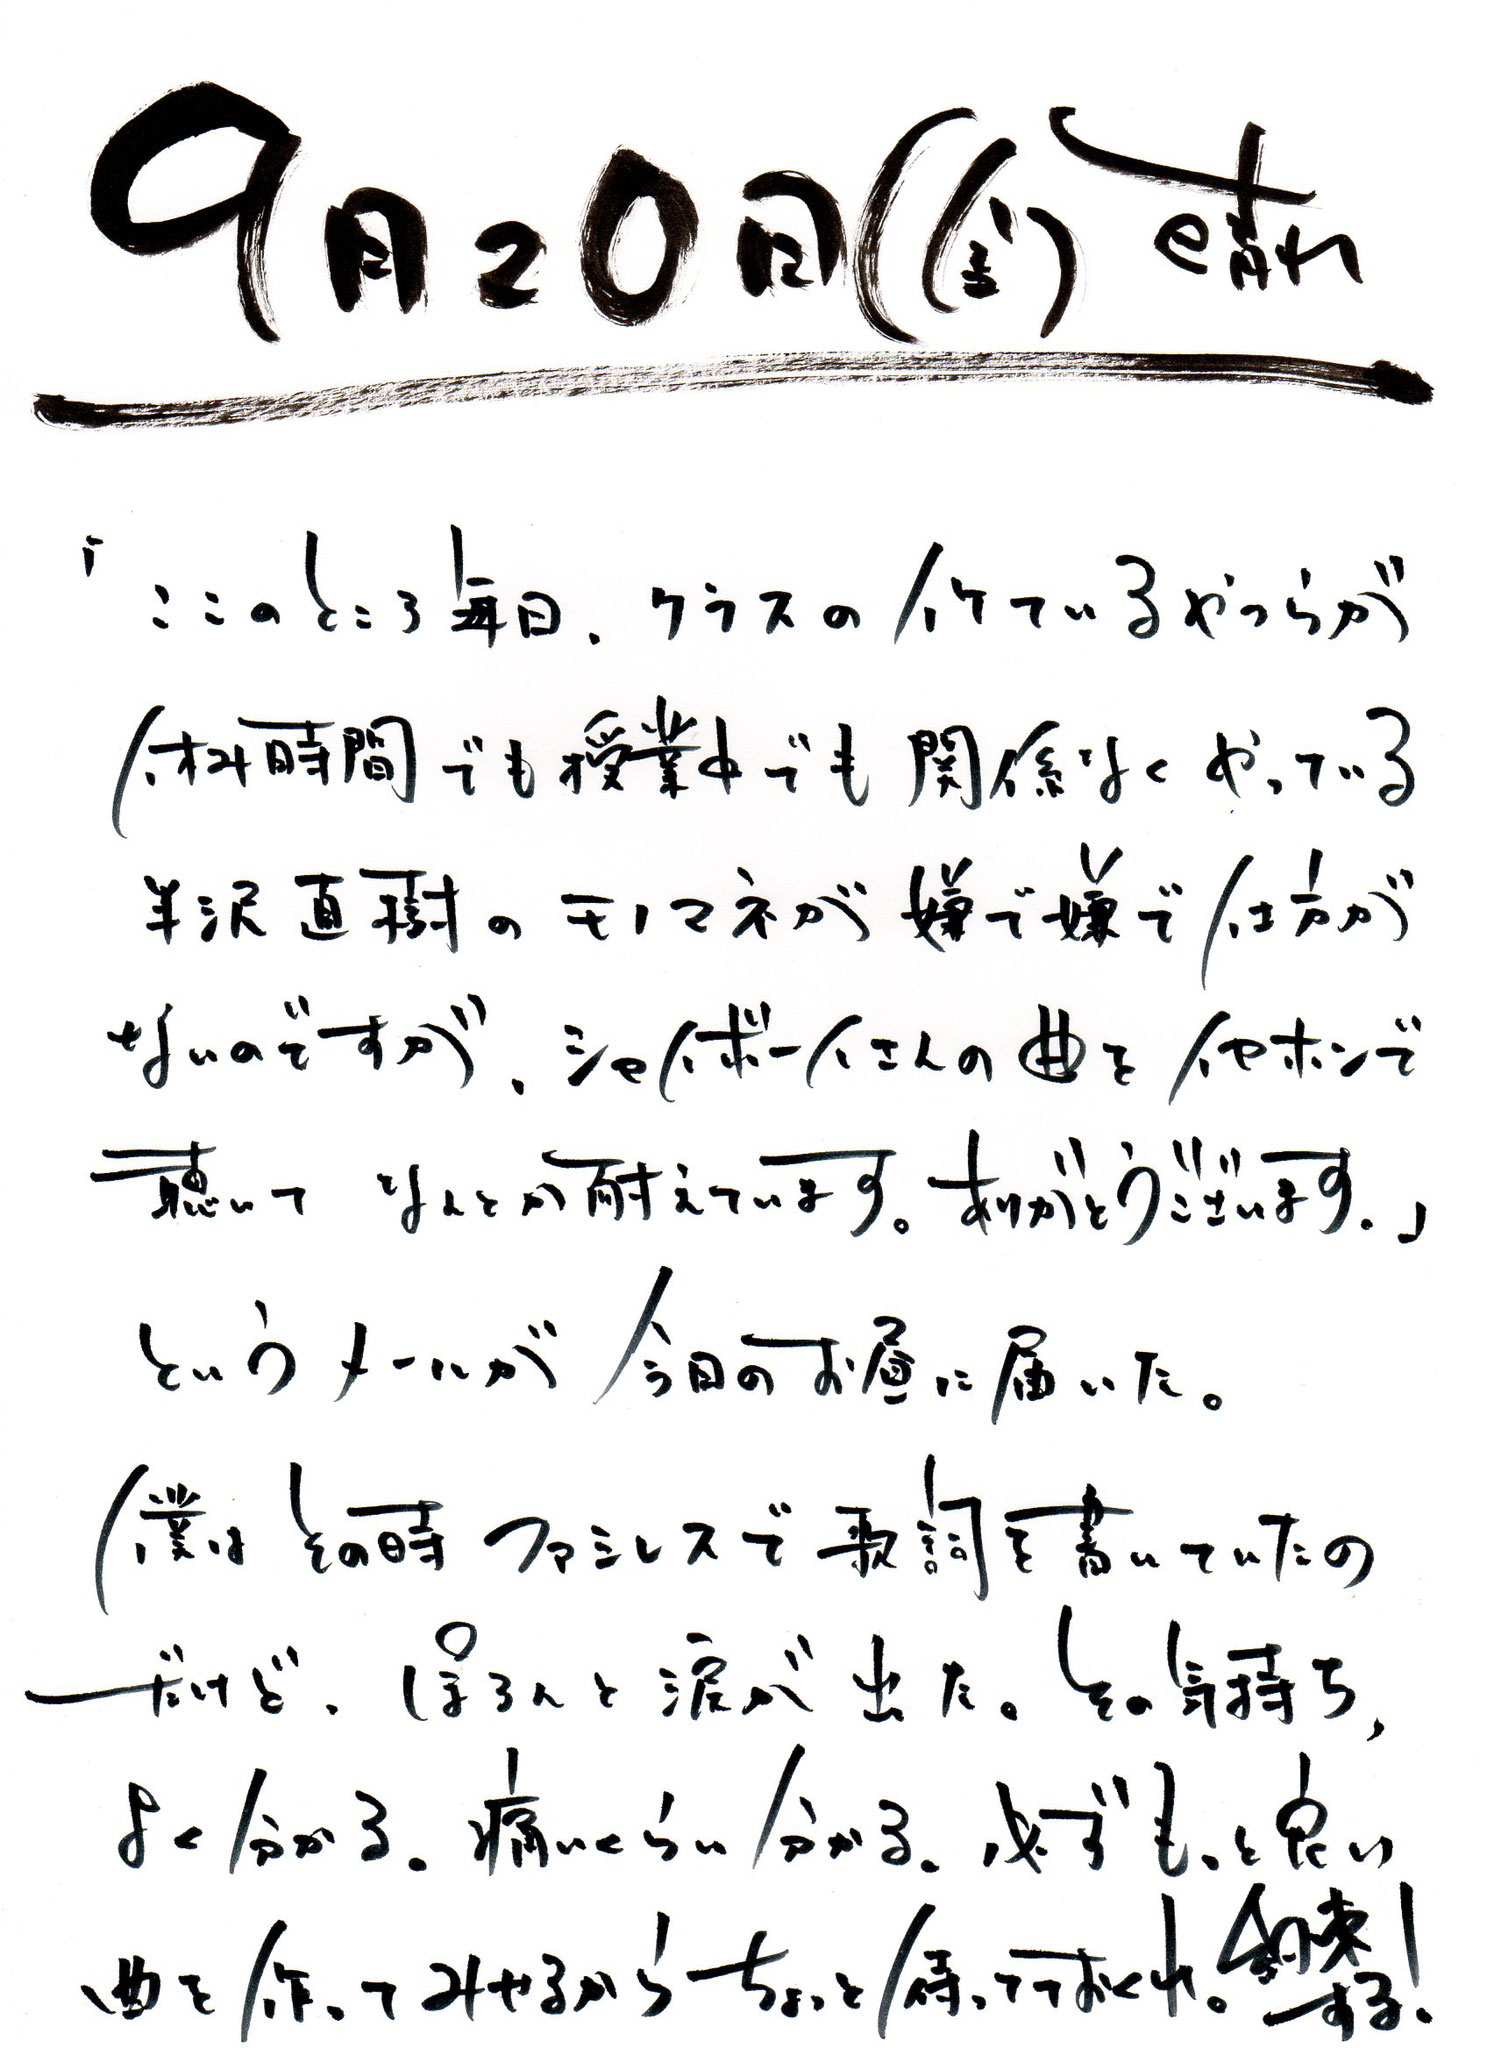 9月20日(金)晴れ
「ここのところ毎日、クラスのイケているやつらが
休み時間でも授業中でも関係なくやっている
半沢直樹のモノマネが嫌で嫌で仕方が
ないのですが、シャイボーイさんの曲をイヤホンで
聴いてなんとか耐えています。ありがとうございます。」
というメールが今日のお昼に届いた。
僕はその時ファミレスで歌詞を書いていたの
だけど、ぽろんと涙が出た。その気持ち、
よく分かる。痛いくらい分かる。必ずもっと良い
曲を作ってみやるからちょっと待ってておくれ。約束
する!